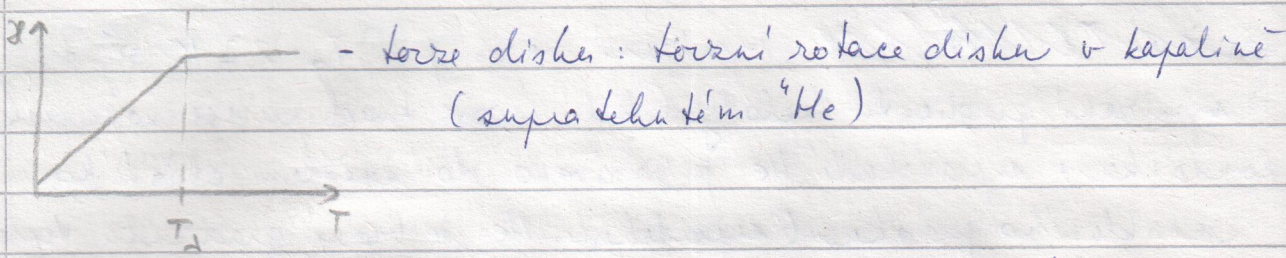 - torze disku : torzní rotace disku v kapalině
(supratekutém ⁴He)
T
T_λ